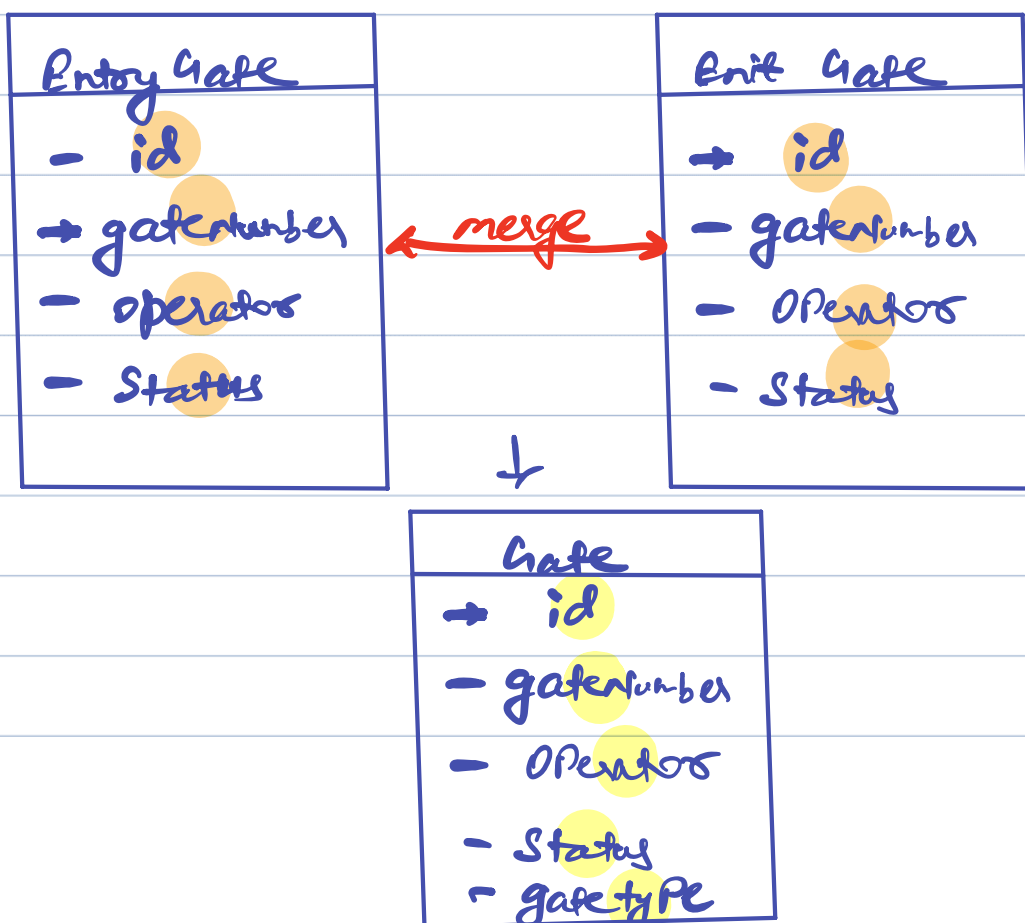 Entry Gate
- id
→ gateNumber
- operator
- Status
merge
Exit Gate
→ id
- gateNumber
- Operator
- Status
Gate
→ id
- gateNumber
- Operator
- Status
- gatetype